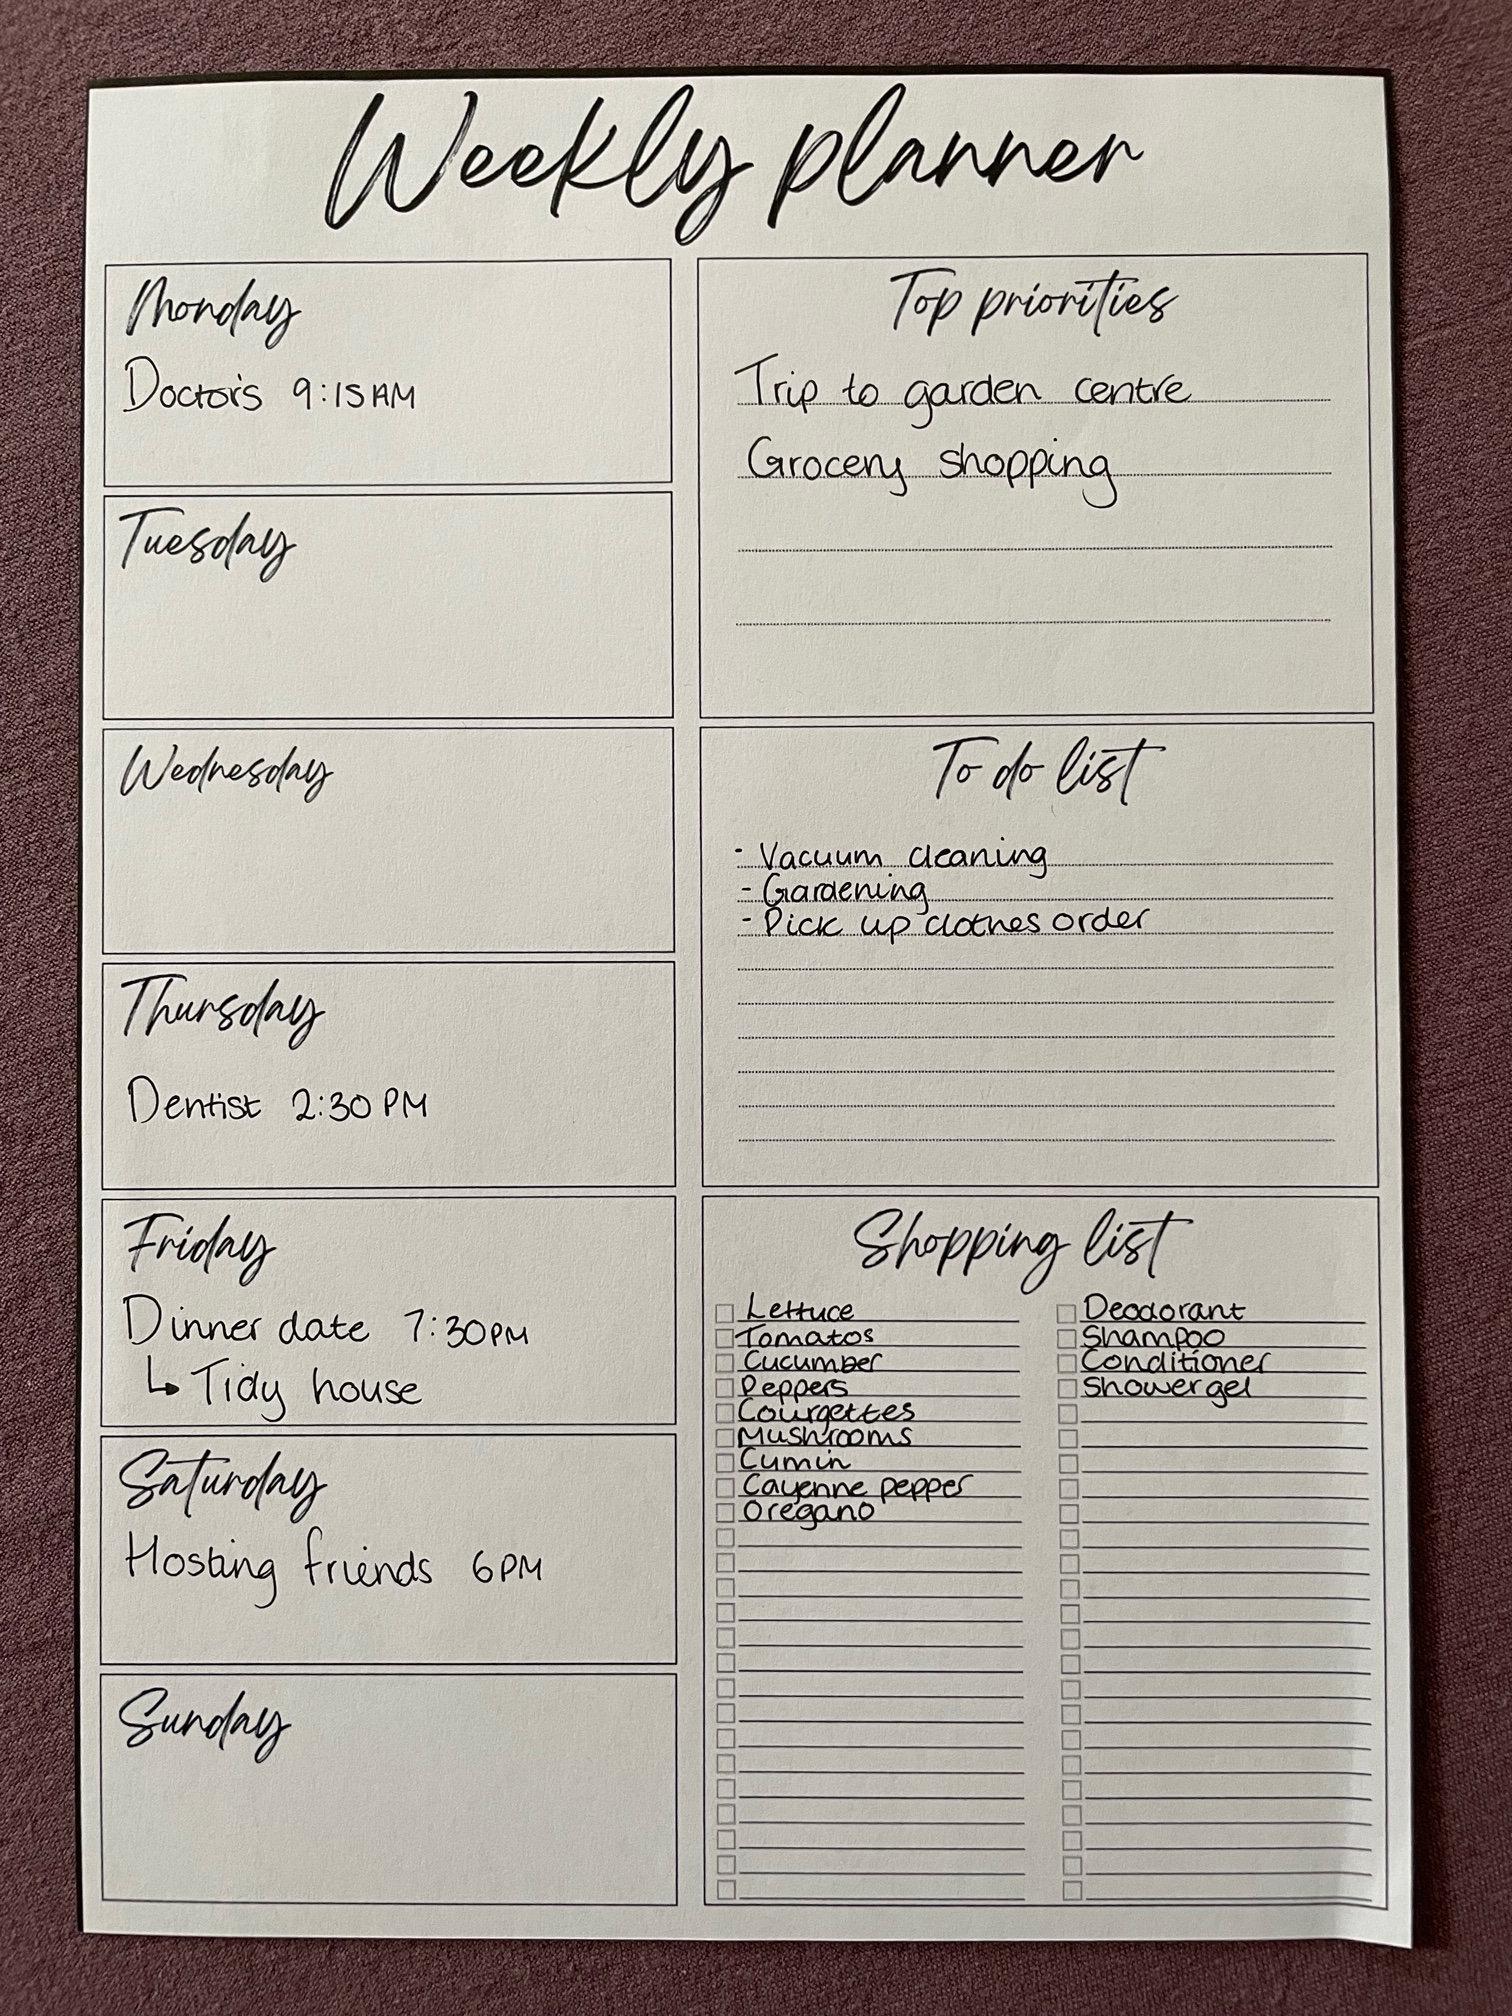 Weekly planner
Monday
Doctor's 9:15AM
Tuesday
Wednesday
Thursday
Dentist 2:30PM
Friday
Dinner date 7:30PM
↳ Tidy house
Saturday
Hosting friends 6PM
Sunday
Top priorities
Trip to garden centre
Grocery shopping
To do list
- Vacuum cleaning
- Gardening
- Pick up clothes order
Shopping list
Lettuce
Tomatos
Cucumber
Peppers
Courgettes
Mushrooms
Cumin
Cayenne pepper
Oregano
Deodorant
Shampoo
Conditioner
Shower gel